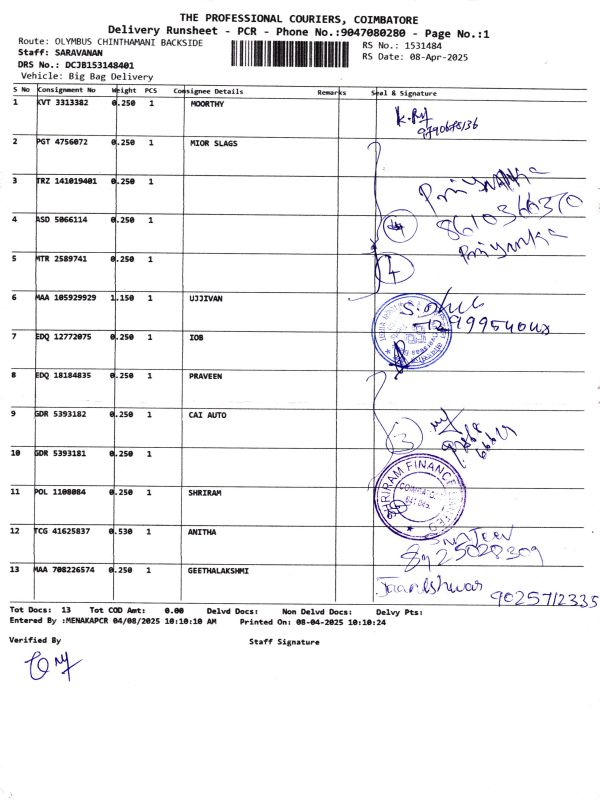 THE PROFESSIONAL COURIERS, COIMBATORE
Delivery Runsheet - PCR - Phone No.:9047080280 - Page No.:1
Route: OLYMBUS CHINTHAMANI BACKSIDE
RS No.: 1531484
Staff: SARAVANAN
RS Date: 08-Apr-2025
DRS No.: DCJB153148401
Vehicle: Big Bag Delivery
S No Consignment No Weight PCS Consignee Details Remarks Seal & Signature
1 KVT 3313382 0.250 1 MOORTHY
2 PGT 4756072 0.250 1 MIOR SLAGS
3 TRZ 141019401 0.250 1
Priyanka
4 ASD 5066114 0.250 1
4
Priyanka
5 MTR 2589741 0.250 1
4
6 MAA 105929929 1.150 1 UJJIVAN
7 EDQ 12772075 0.250 1 IOB
8 EDQ 18184835 0.250 1 PRAVEEN
9 GDR 5393182 0.250 1 CAI AUTO
3
10 GDR 5393181 0.250 1
11 POL 1108084 0.250 1 SHRIRAM
SHRIRAM FINANCE LIMITED
12 TCG 41625837 0.530 1 ANITHA
13 MAA 708226574 0.250 1 GEETHALAKSHMI
9025712335
Tot Docs: 13 Tot COD Amt: 0.00 Delvd Docs: Non Delvd Docs: Delvy Pts:
Entered By :MENAKAPCR 04/08/2025 10:10:10 AM Printed On: 08-04-2025 10:10:24
Verified By Staff Signature